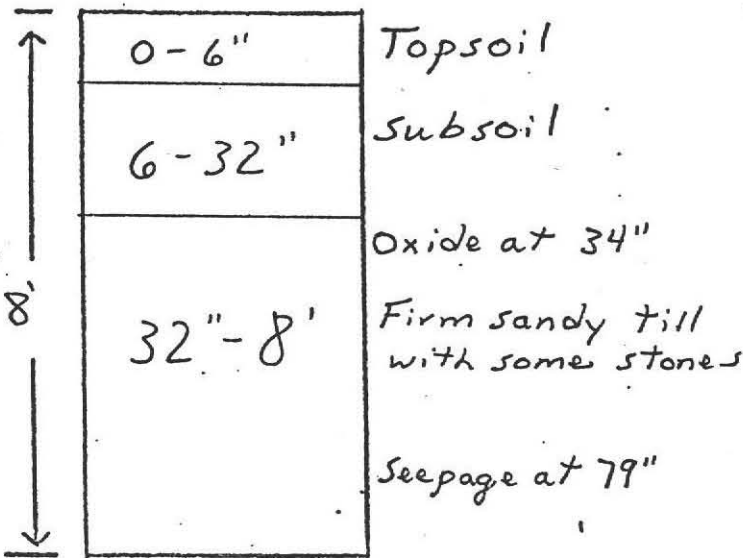 0-6" Topsoil
6-32" Subsoil
Oxide at 34"
8'
32"-8' Firm sandy till
with some stones
Seepage at 79"